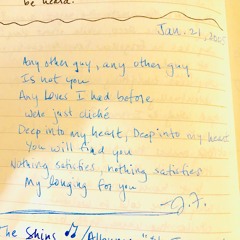 be heard.
Jan. 21, 200
Any other guy, any other guy
Is not you
Any loves I had before
Were just cliché
Deep into my heart, Deep into my heart
You will find you
Nothing satisfies, nothing satisfies
My longing for you
J.F.
The Shins